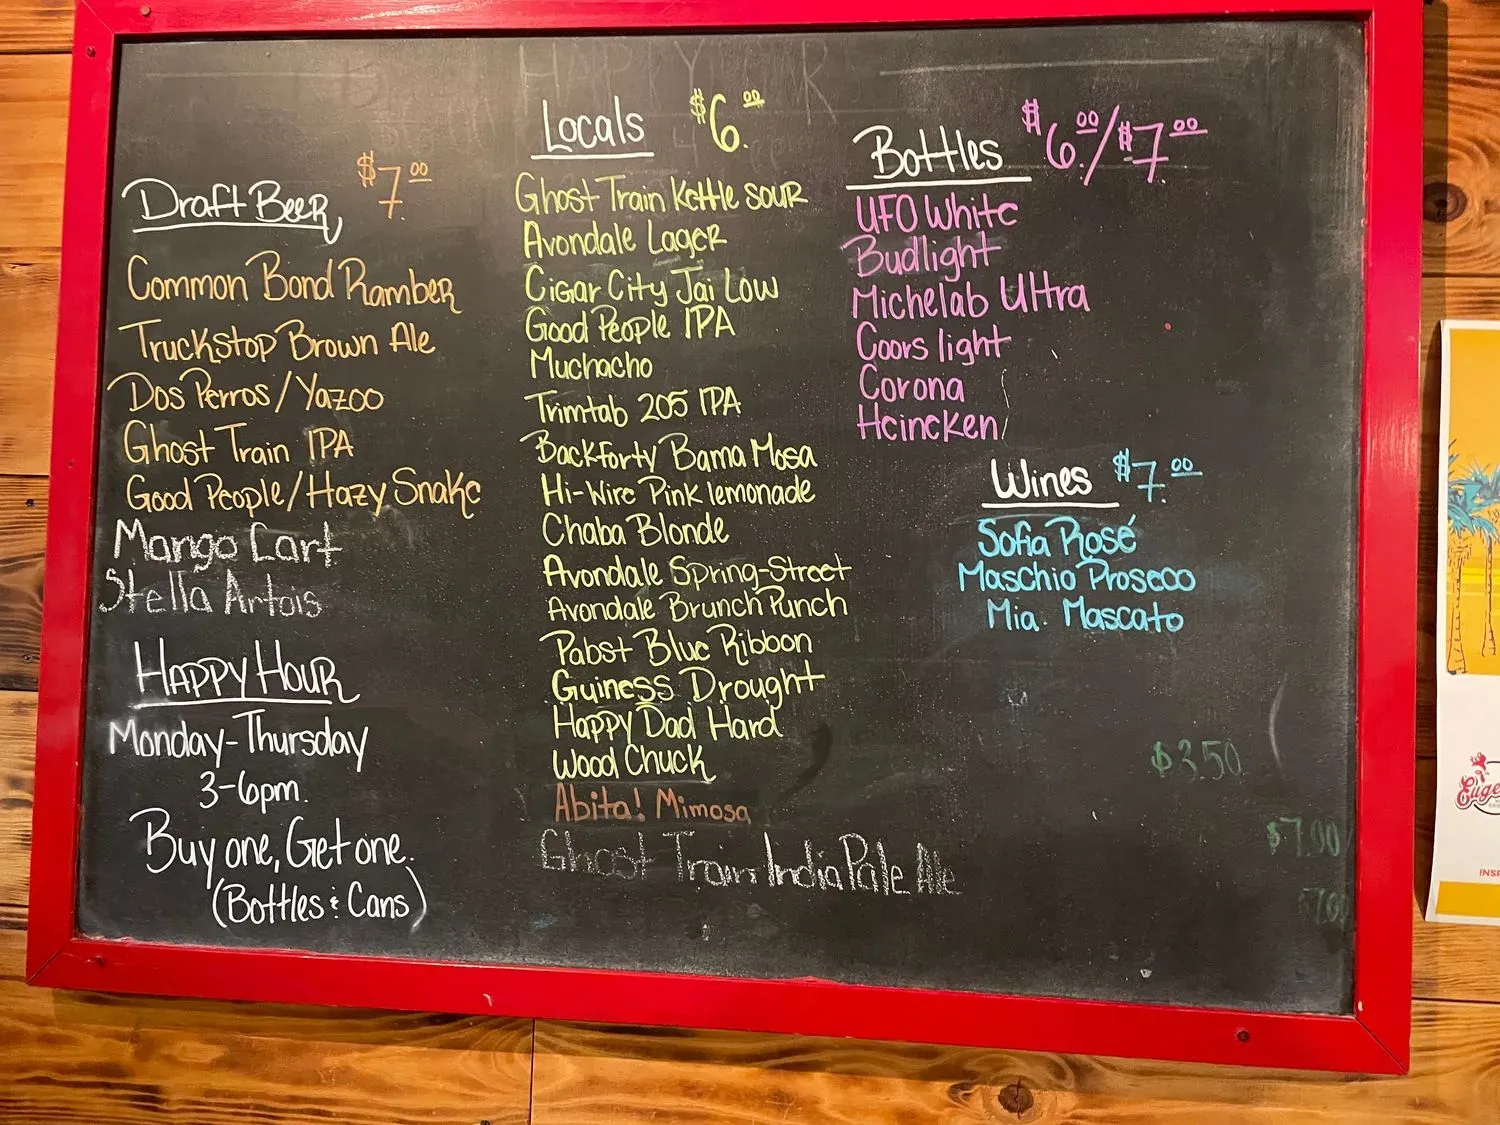 Draft Beer $7.00
Common Bond Ramber
Truckstop Brown Ale
Dos Perros/Yazoo
Ghost Train IPA
Good People/Hazy Snake
Mango Cart
Stella Artois
Happy Hour
Monday-Thursday
3-6pm.
Buy one, Get one.
(Bottles & Cans)
HAPPY
Locals $6.00
Ghost Train Kettle Sour
Avondale Lager
Cigar City Jai Low
Good People IPA
Muchacho
Trimtab 205 IPA
Backforty Bama Mosa
Hi-Wire Pink lemonade
Chaba Blonde
Avondale Spring-Street
Avondale Brunch Punch
Pabst Blue Ribbon
Guiness Drought
Happy Dad Hard
Wood Chuck
Abita! Mimosa
Ghost Train India Pale Ale
Bottles $6.00/$7.00
UFO White
Budlight
Michelab Ultra
Coors light
Corona
Heineken
Wines $7.00
Sofia Rosé
Maschio Proseco
Mia. Mascato
$3.50
$7.00
$7.00
Euge
INSP